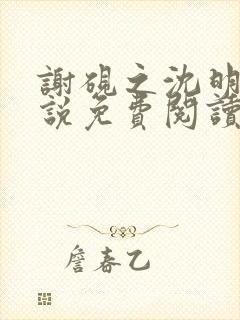 謝硯之沈明
說免費閱讀
詹春乙